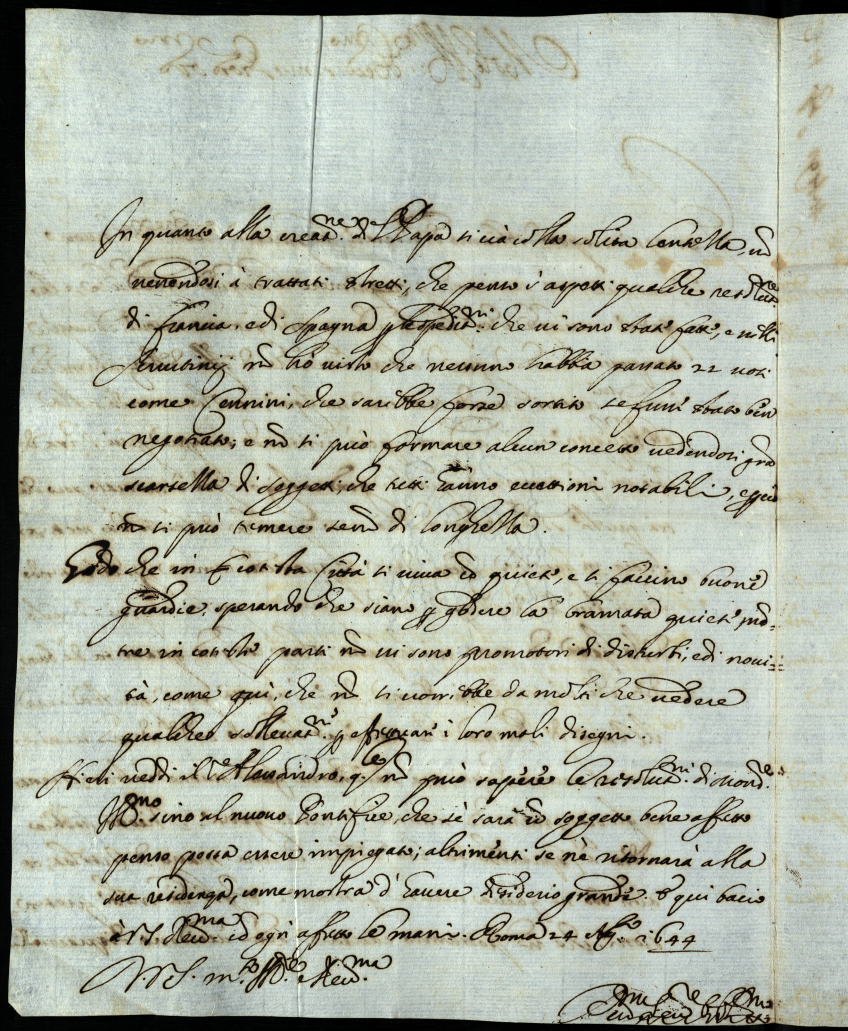 In quanto alla creat.ne del Papa si và colla solita lentezza, nõ
venendosi à trattati stretti, che penso s'aspetti qualche resolut.ne
di Francia, e di Spagna p le speditni. che vi sono state fatte, e nelli
scrutinij nõ hò visto che nessuno habbia passato 22 voti
come Cennini, che sarebbe forse sortito se fusse stato ben
negotiato; e nõ si può formare alcun concetto vedendosi grã
scarsella di soggetti, che tutti hanno eccettioni notabili, e più
nõ si può temere senõ di longhezza.
Godo che in cotesta Città si viva cõ quiete, e si faccino buone
guardie, sperando che siano p godere la bramata quiete, mẽ-
tre in coteste parti nõ vi sono promotori di disturbi, e di novi-
tà, come quì, che nõ si vorrebbe da molti che vedere
qualche sollevat.ne p effettuare i loro mali disegni.
Hieri veddi il Alessandro, q.le nõ può sapere le resolut.ni di Mons.re
Ill.mo sino al nuovo Pontefice, che sè sarà cõ soggetto bene affetto
penso possa essere impiegato; altrimenti se nè ritornarà alla
sua residenza, come mostra d'havere desiderio grande. E qui bacio
à V.S. Rev.ma cõ ogni affetto le mani. Roma 24 Ag.o 1644
D. V.S. m.to Ill.re e Rev.ma